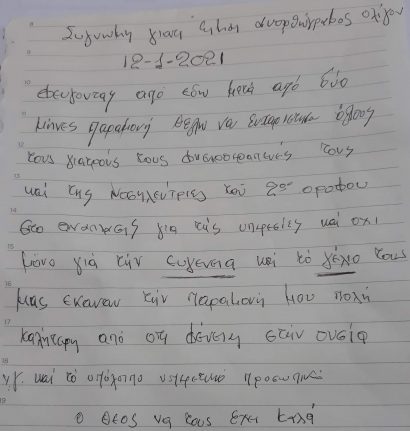 Συγνωμη γιατι ειμαι ανορθωγραφος ολίγον
12-1-2021
Φευγοντας από εδω μετά από δύο
μηνες παραμονή θελω να ευχαριστησω όλους
τους γιατρούς τους φυσιοθεραπευές τους
και της νοσηλευτριες του 2ου οροφου
στο αναπλασις για τής υπηρεσίες και οχι
μόνο γιά τήν ευγενεια και τό γέλιο τους
μας εκαναν τήν παραμονή μου πολή
καλήτερη από οτι φένετε στήν ουσία
υ.γ. και τό υπόλοιπο υπηρετικό προσωπικό
ο θεος να τους εχει καλά